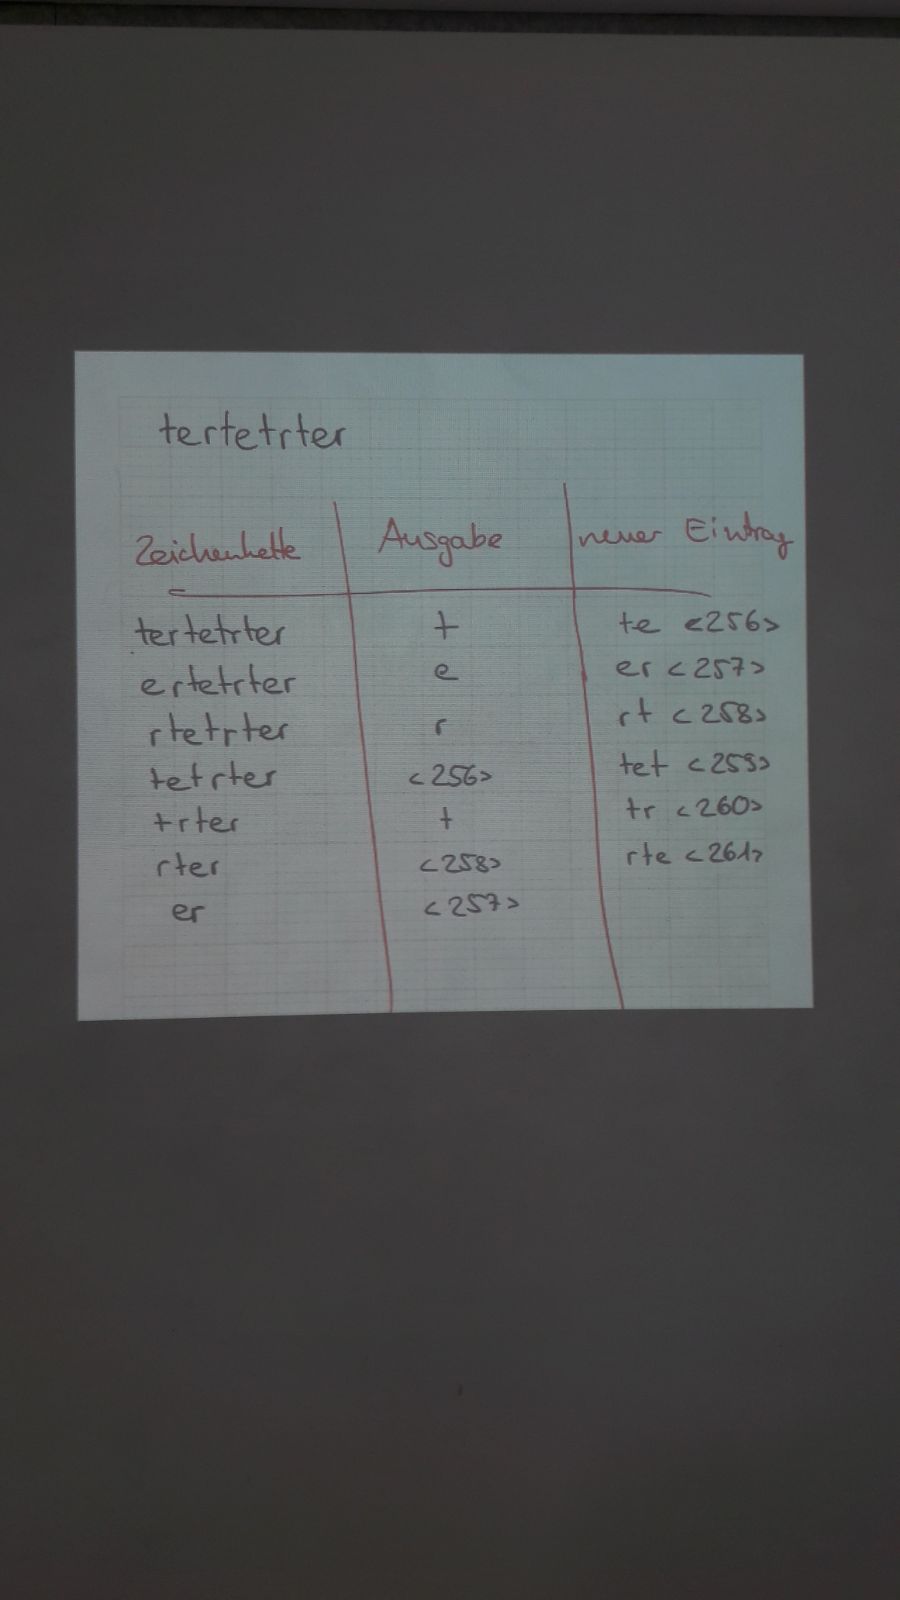 tertetrter
Zeichenkette Ausgabe neuer Eintrag
tertetrter t te <256>
ertetrter e er <257>
rtetrter r rt <258>
tetrter <256> tet <259>
trter t tr <260>
rter <258> rte <261>
er <257>